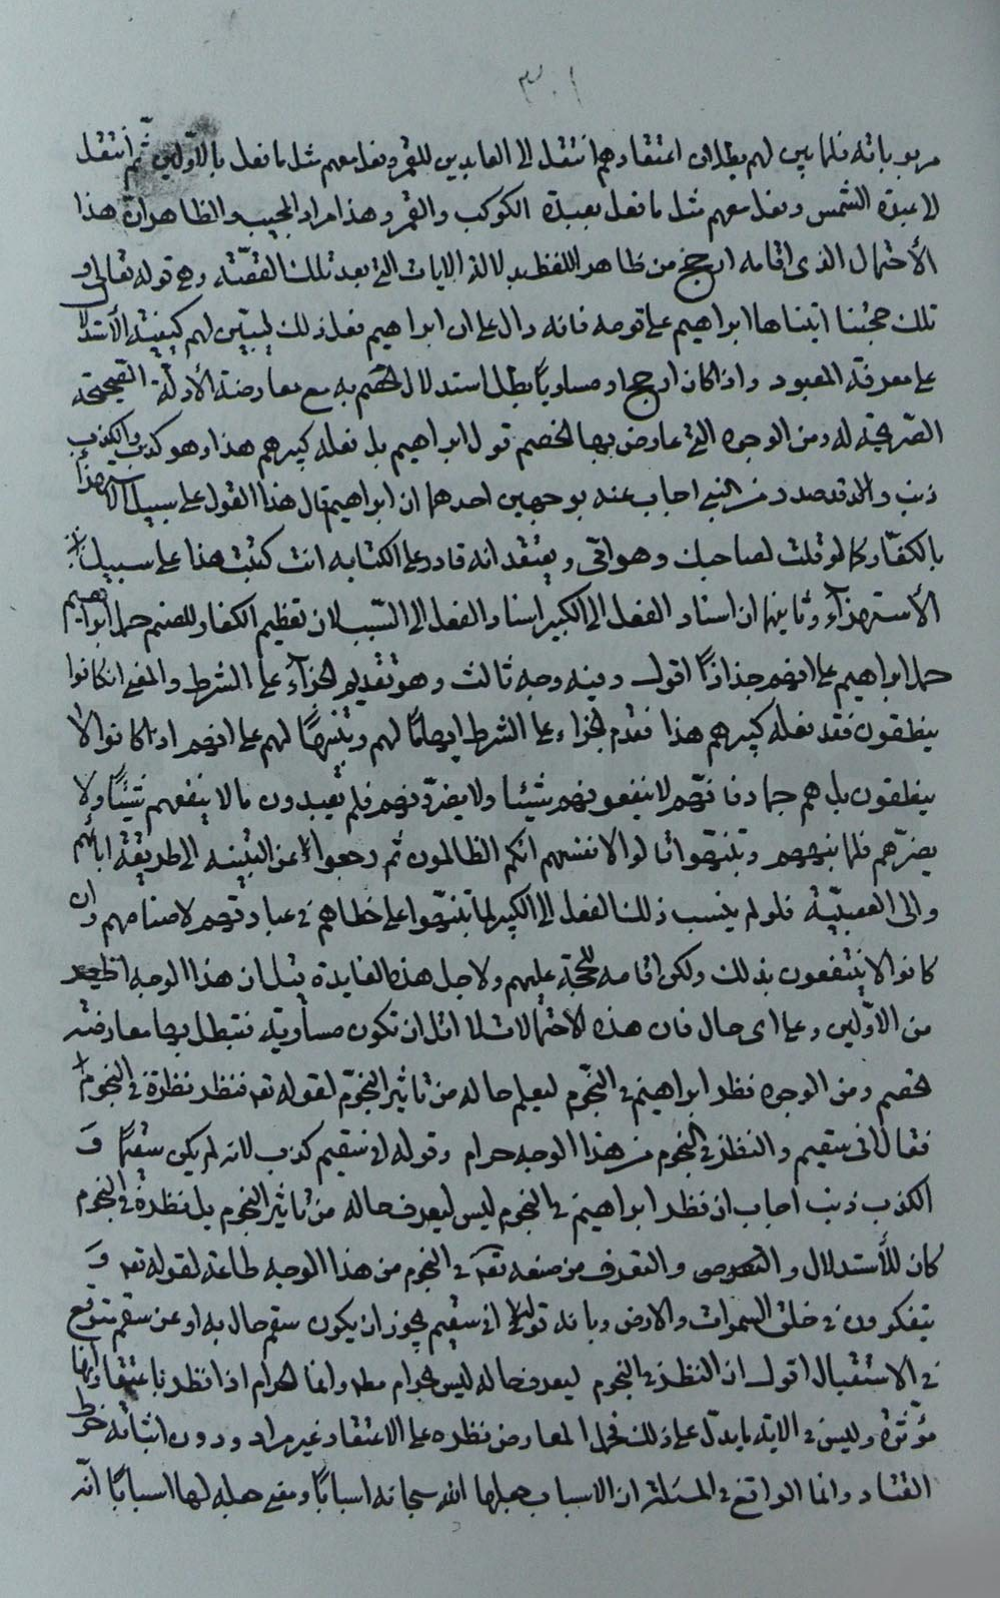 ٣٠١
مربوباته فلما بين لهم بطلان اعتقادهم انتقل الى العابدين للقمر وفعل معهم مثل ما فعل بالاولين ثم انتقل
لا عبدة الشمس وفعل معهم مثل ما فعل بعبدة الكوكب والقمر وهذا مراد المجيب والظاهر ان هذا
الأحتمال الذى اقامه ارجح من ظاهر اللفظ بدلالة الايات التى بعد تلك القصّة وهى قوله تعالى و
تلك حجتنا اتيناها ابراهيم على قومه فانه دال على ان ابراهيم فعل ذلك ليبيّن لهم كيفية الأستدلا
على معرفة المعبود واذا كان ارجح او مساويًا بطل استدلال الخصم به مع معارضة الأدلّة الصحيحة
الصّريحة له ومن الوجوه التى عارض بها الخصم قول ابراهيم بل فعله كبيرهم هذا وهو كذب والكذب
ذنب والد قد صدر من النبى اجاب عنه بوجهين احدهما ان ابراهيم قال هذا القول على سبيل الاستهزأ
بالكفّار كما لو قلت لصاحبك وهو امّى ويعتقد انه قادر على الكتابه انت كتبت هذا على سبيل
الأستهزآء وثانيهما ان اسناد الفعل الى الكبير اسناد الفعل الى السّبب لان تعظيم الكفار للصنم حمل ابراهيم
حمل ابراهيم على انهم جذاذًا اقول وفيه وجه ثالث وهو تقديم الجزآء على الشرط والمعنى ان كانوا
ينطقون فقد فعله كبيرهم هذا فقدم الجزاء على الشرط ايهامًا لهم وتنبيهًا لهم على انهم اذا كانوا لا
ينطقون بل هم جماد فانهم لا ينفعونهم شيئا ولا يضرّونهم فلم تعبدون ما لا ينفعهم شيئًا ولا
يضرّهم فلما نبههم وتنبّهوا قالوا لانفسهم انكم الظالمون ثم رجعوا عن التنبيه الى طريقة ابائهم
والى العصبيّة فلو لم ينسب ذلك الفعل الى الكبير لما تنبّهوا على خطاهم فى عبادتهم لاصنامهم وان
كانوا لا ينتفعون بذلك ولكن اقامه للحجة عليهم ولاجل هذه الفايدة قيل ان هذا الوجه اظهر
من الاوّلين وعلى اى حال فان هذه الاحتمالات لا اقل ان تكون مساوية فتبطل بها معارضة
الخصم ومن الوجوه نظر ابراهيم فى النّجوم ليعلم حاله من تاثير النجوم لقوله تعـ فنظر نظرة فى النجوم
فقال انى سقيم والنظر فى النجوم من هذا الوجه حرام وقوله انى سقيم كذب لانه لم يكن سقيمًا و
الكذب ذنب اجاب ان نظر ابراهيم فى النجوم ليس ليعرف حاله من تاثير النجوم بل نظره فى النجوم
كان للأستدلال والتعرف من صنعه تعـ فى النجوم من هذا الوجه طاعة لقوله تعـ و
يتفكرون فى خلق السموات والارض وبانه قوله انى سقيم يجوز ان يكون سقم حال به او عن سقم متوقع
فى الاستقبال اقول ان النظر فى النجوم ليعرف حاله ليس بحرام مط وانما الحرام اذا نظر باعتقاد انها
مؤثرة وليس فى الايه ما يدلّ على ذلك فحمل المعارض نظره على الاعتقاد غير مراد ودون اثباته خرط
القتاد وانما الواقع فى المسئلة ان الاسباب جعلها الله سبحانه اسبابًا ومعنى جعله لها اسبابًا انّه